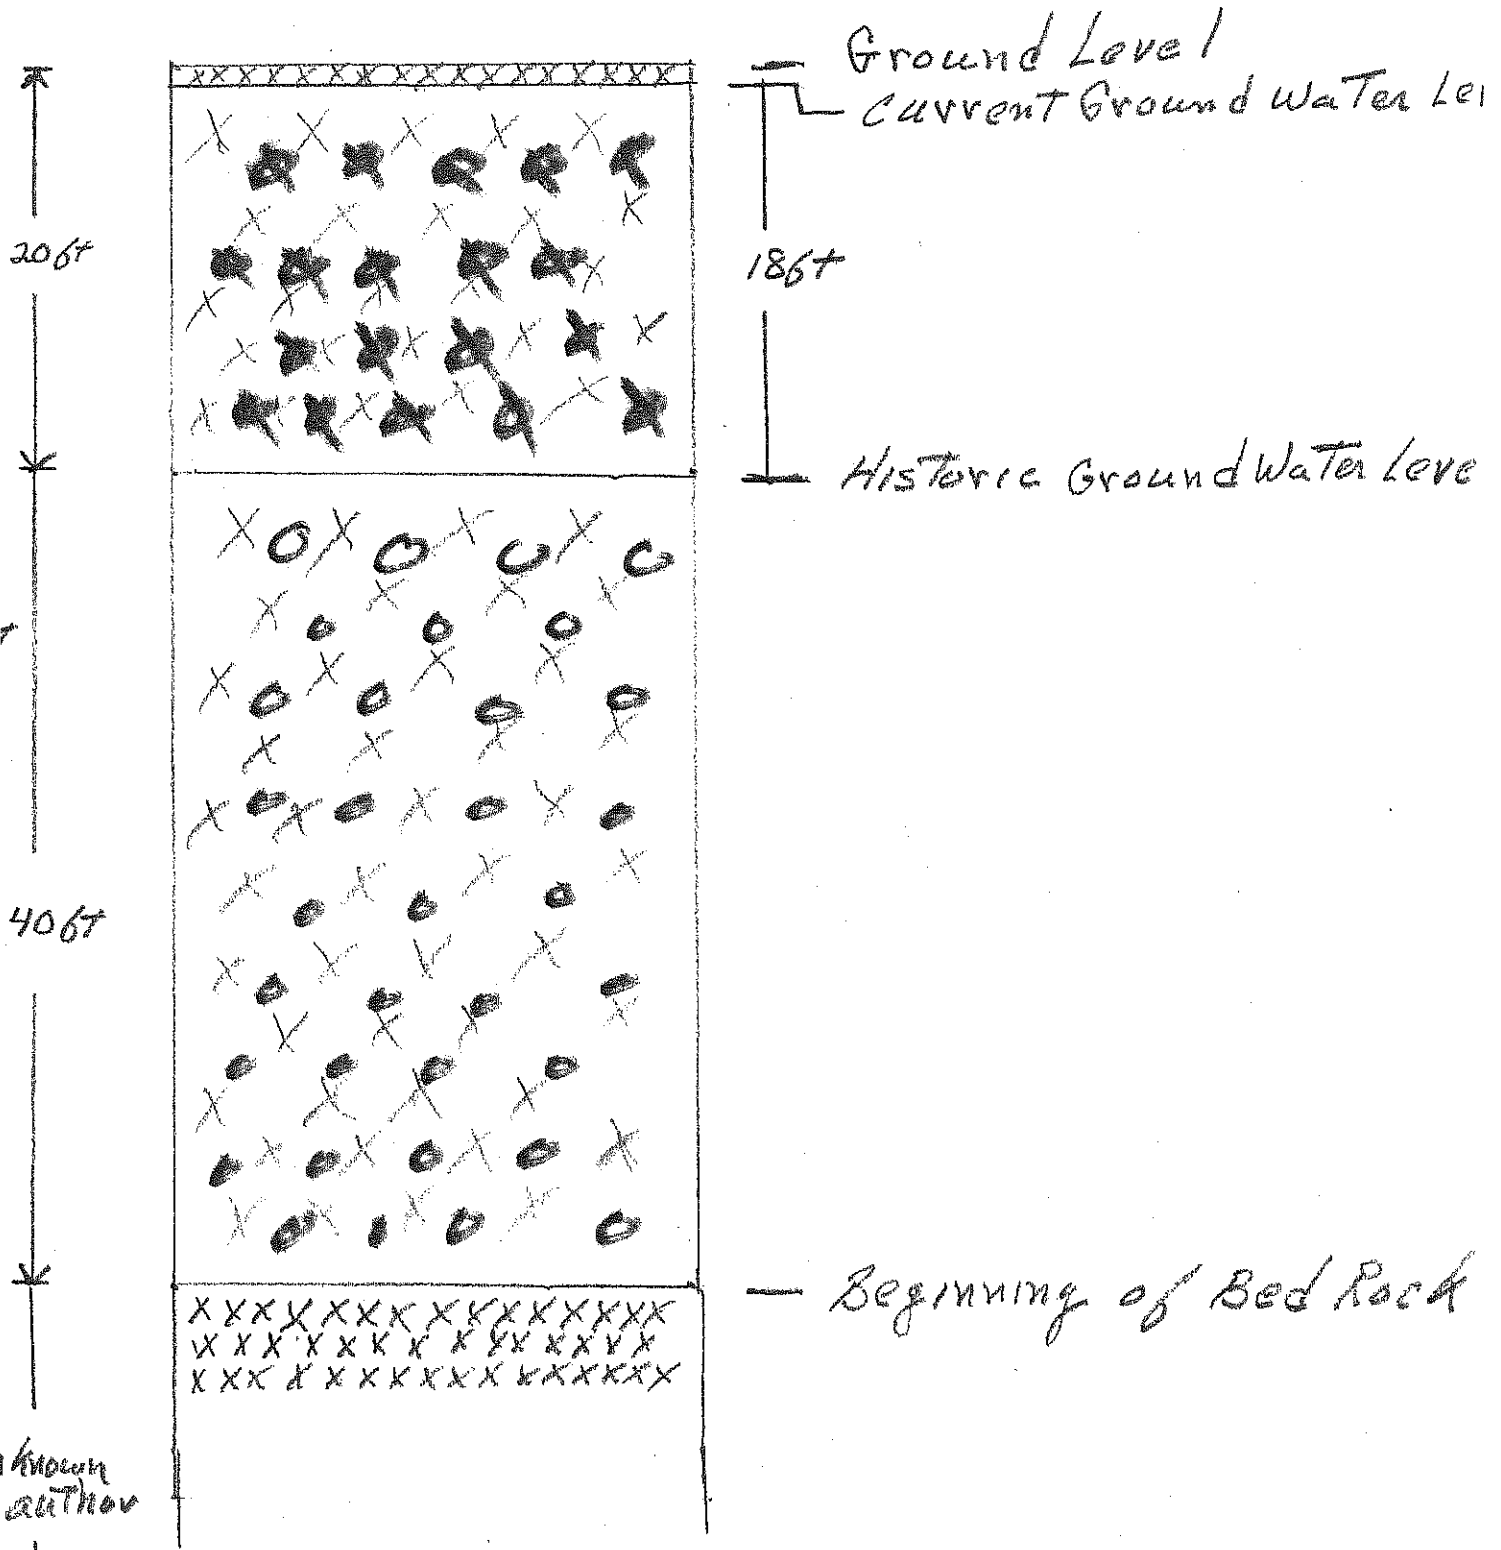 Ground Level
Current Ground Water Le
20ft
18ft
Historic Ground Water Leve
40ft
Beginning of Bed Rock
known
author